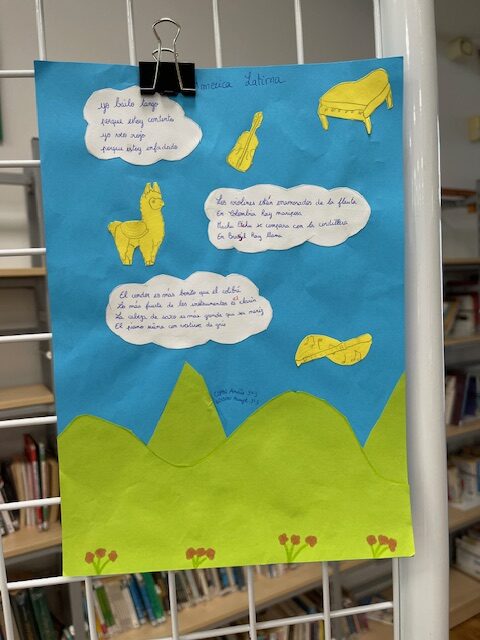 America Latina
yo bailo tango
porque estoy contento
yo veo rojo
porque estoy enfadado
Los violines están enamorados de la flauta
En Colombia hay mariposa
Machu Pichu se compara con la cordillera
En Brasil hay llama
El condor es más bonito que el colibrí
Lo más fuerte de los instrumentos es el clarín
La cabeza de saxo es más grande que su nariz
El piano suena con vestidos de gris